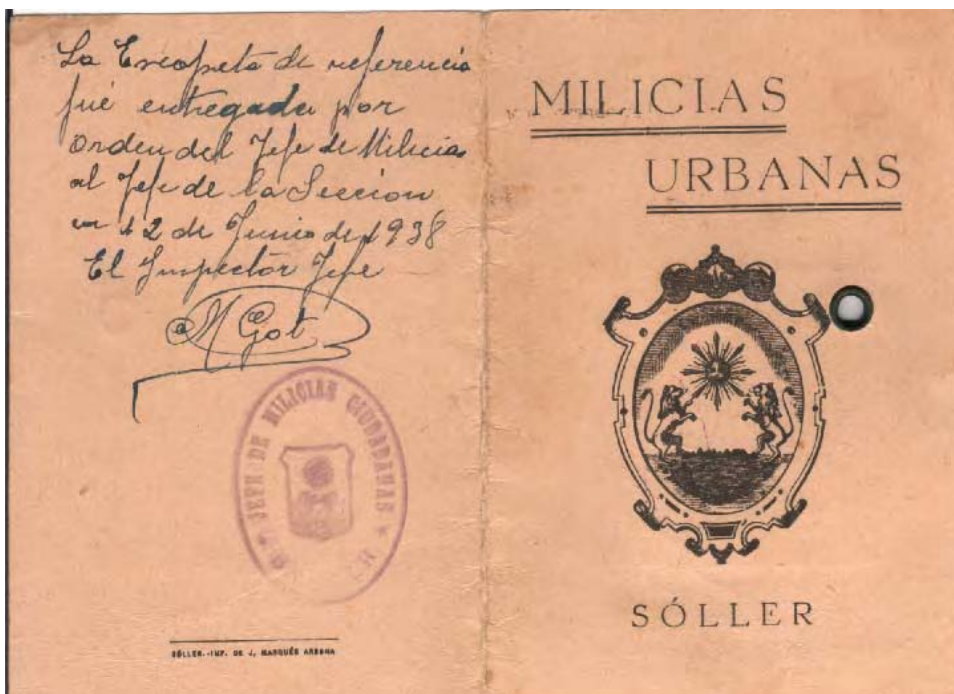 La Escopeta de referencia
fué entregada por
Orden del Jefe de Milicias
al Jefe de la Seccion
en 12 de Junio de 1938
El Inspector Jefe
M Got
JEFE DE MILICIAS CIUDADANAS
SÓLLER.-IMP. DE J. MARQUÉS ARBONA
MILICIAS
URBANAS
SÓLLER